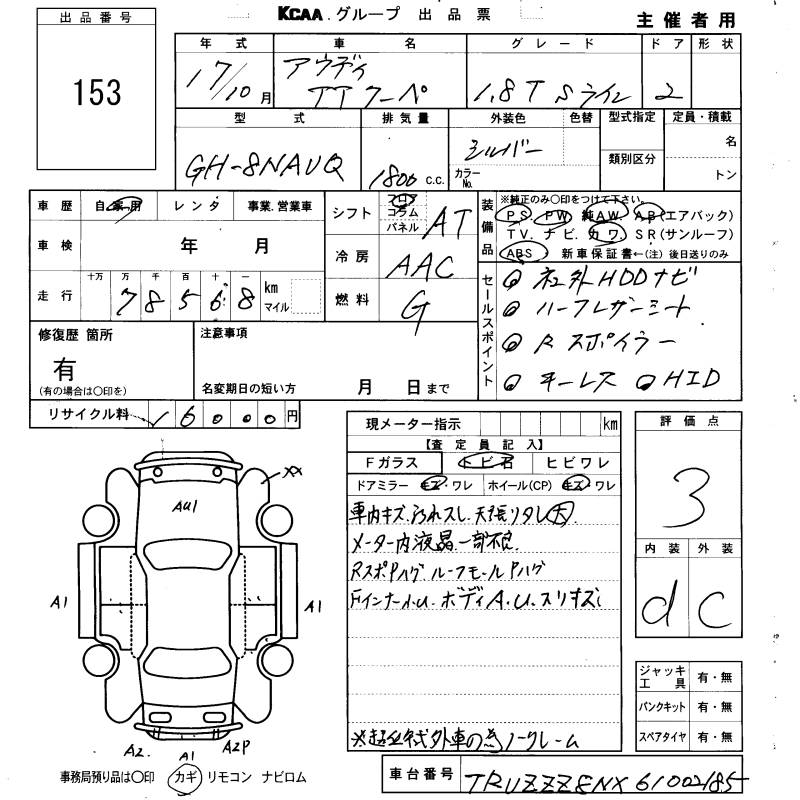 出品番号
153
KCAA グループ 出品票
主催者用
年式 車名 グレード ドア 形状
17/10月 アウディ TTクーペ 1.8T Sライン 2
型式 排気量 外装色 色替 型式指定 定員・積載
GH-8NAUQ 1800 c.c. シルバー カラーNo. 類別区分 名 トン
車歴 自家用 レンタ 事業.営業車
車検 年 月
走行 十万 万 千 百 十 一 km マイル
78568
シフト フロア コラム パネル AT
冷房 AAC
燃料 G
装備品 ※純正のみ○印をつけて下さい。
PS. PW. 純AW. AB(エアバック)
TV. ナビ. カワ SR(サンルーフ)
ABS 新車保証書←(注)後日送りのみ
セールスポイント
社外HDDナビ
ハーフレザーシート
Rスポイラー
キーレス HID
修復歴 箇所
有
(有の場合は○印を)
注意事項
名変期日の短い方 月 日まで
リサイクル料 6000円
現メーター指示 km
【査定員記入】
Fガラス トビ石 ヒビワレ
ドアミラー キズ・ワレ ホイール(CP) キズ・ワレ
車内キズ.汚れスレ.天張りタレ大
メーター内液晶.一部不良.
RスポPハゲ.ルーフモールPハゲ
FインナーA.U. ボディA.U.スリキズ
※超低年式外車の為ノークレーム
評価点
3
内装 外装
d C
XX
AU1
A1 A1
A2 A1 A2P
ジャッキ工具 有・無
パンクキット 有・無
スペアタイヤ 有・無
事務局預り品は○印 カギ リモコン ナビロム
車台番号 TRUZZZ8NX61002185